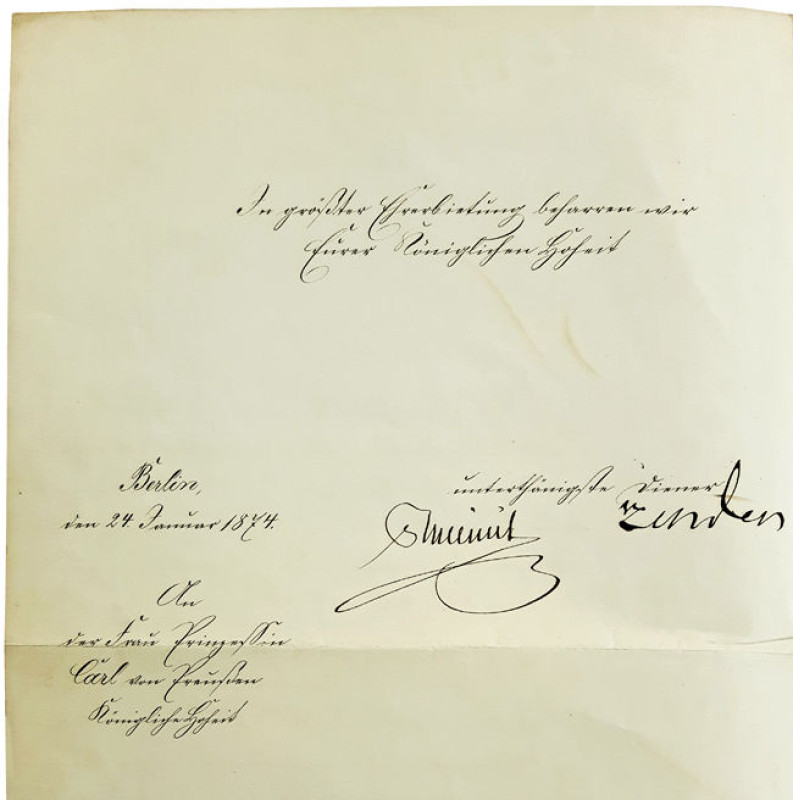 In größter Ehrerbietung beharren wir
Eurer Königlichen Hoheit
Berlin,
den 24. Januar 1874.
unterthänigste Diener
An
der Frau Prinzessin
Carl von Preußen
Königliche Hoheit